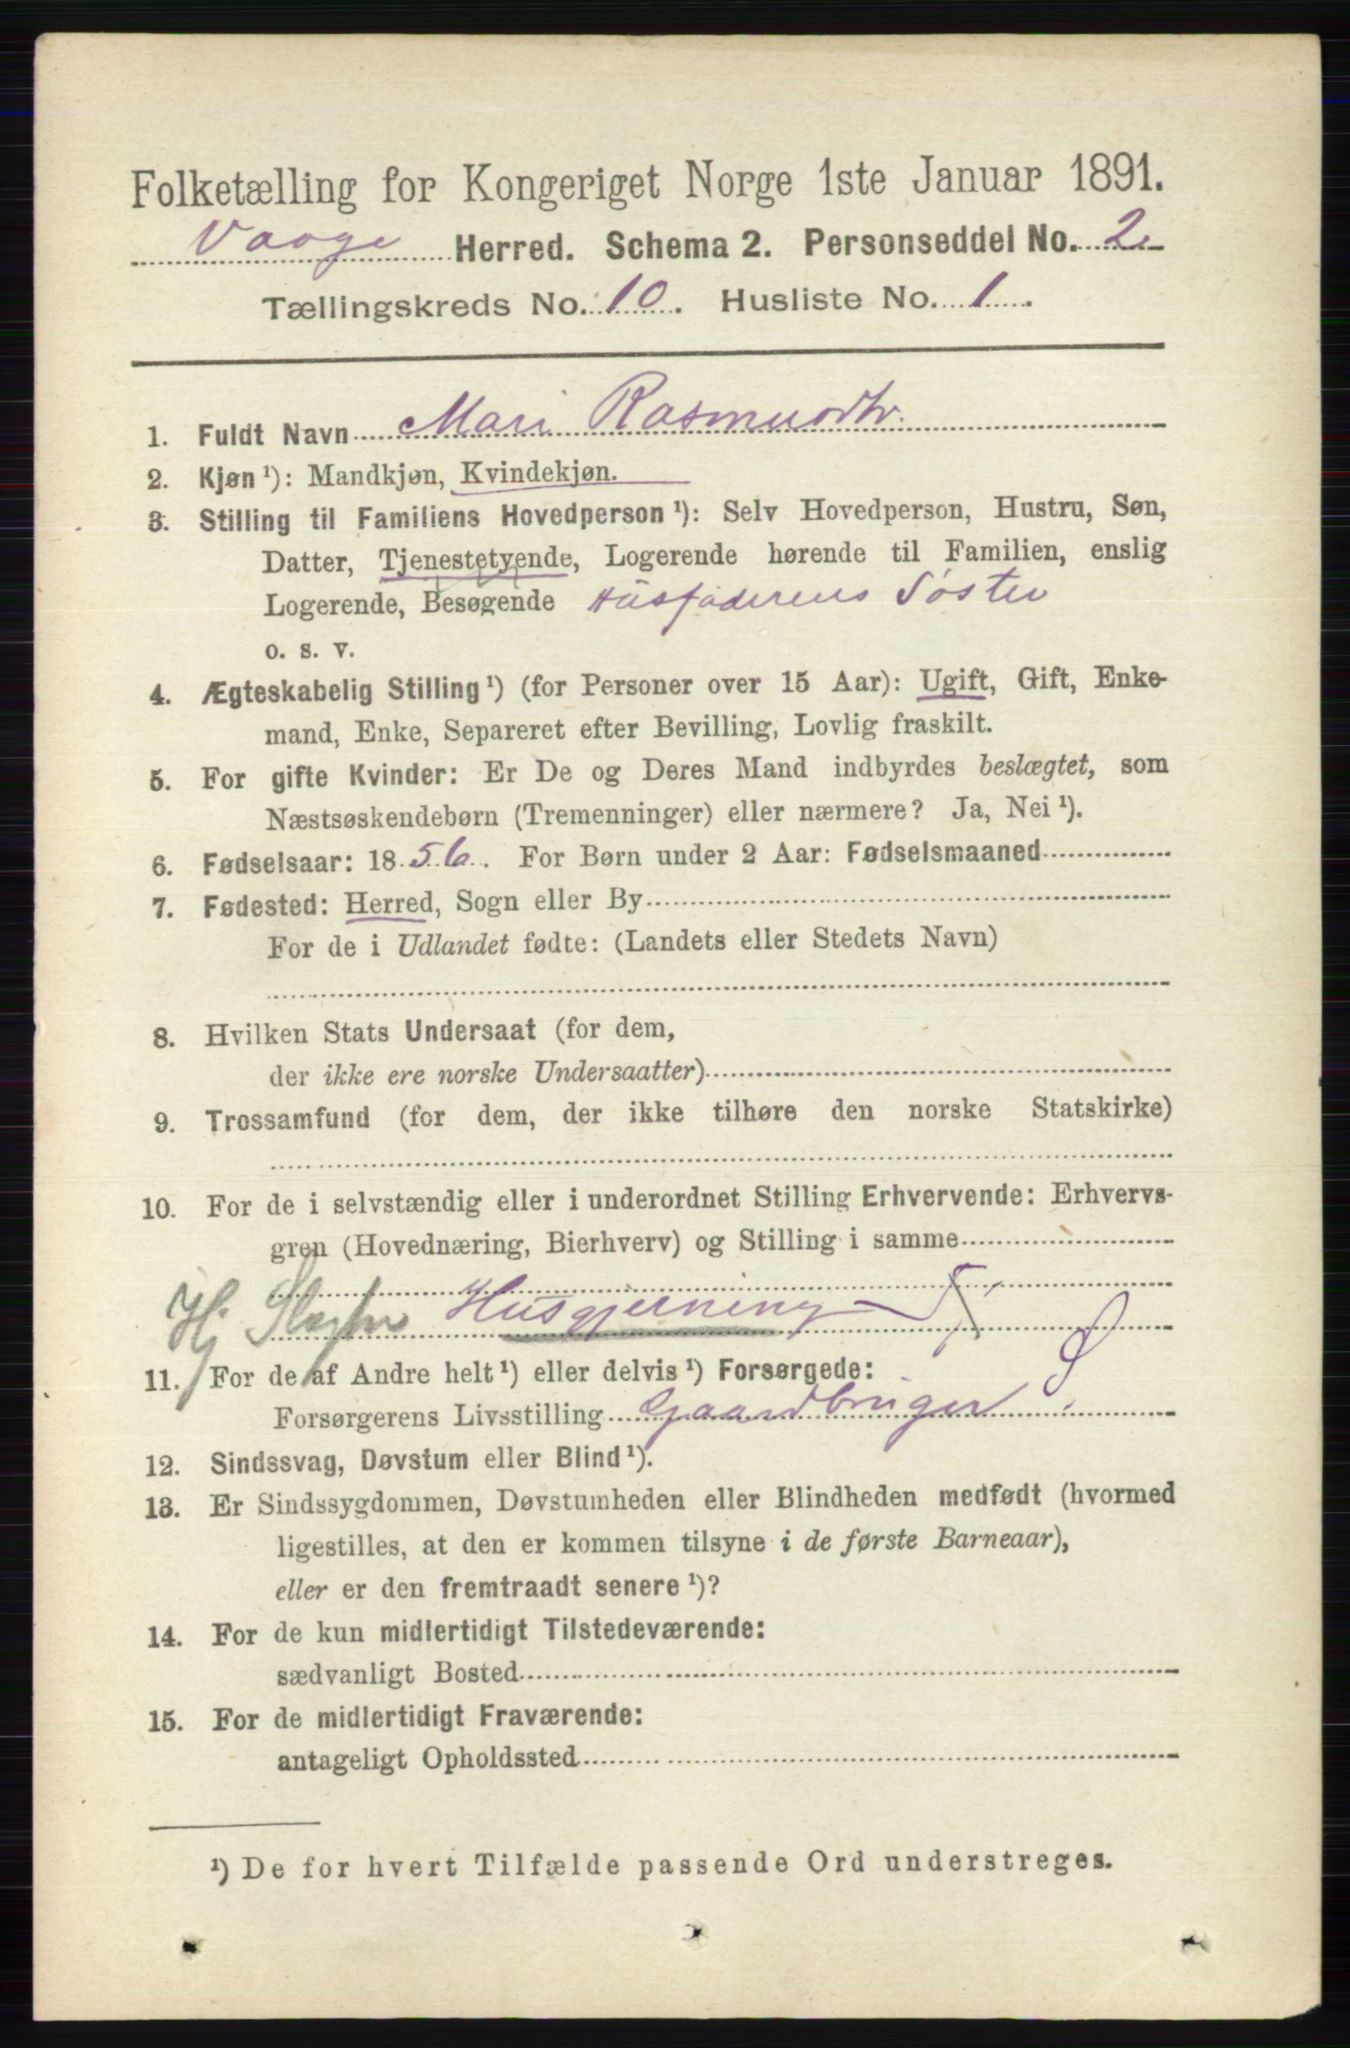 Folketælling for Kongeriget Norge 1ste Januar 1891.
Vaage Herred. Schema 2. Personseddel No. 2.
Tællingskreds No. 10. Husliste No. 1.
1. Fuldt Navn Mari Rasmusdtr.
2. Kjøn ¹): Mandkjøn, Kvindekjøn.
3. Stilling til Familiens Hovedperson ¹): Selv Hovedperson, Hustru, Søn,
Datter, Tjenestetyende, Logerende hørende til Familien, enslig
Logerende, Besøgende Husfaderens Søster
o. s. v.
4. Ægteskabelig Stilling ¹) (for Personer over 15 Aar): Ugift, Gift, Enke-
mand, Enke, Separeret efter Bevilling, Lovlig fraskilt.
5. For gifte Kvinder: Er De og Deres Mand indbyrdes beslægtet, som
Næstsøskendebørn (Tremenninger) eller nærmere? Ja, Nei ¹).
6. Fødselsaar: 1856. For Børn under 2 Aar: Fødselsmaaned
7. Fødested: Herred, Sogn eller By
For de i Udlandet fødte: (Landets eller Stedets Navn)
8. Hvilken Stats Undersaat (for dem,
der ikke ere norske Undersaatter)
9. Trossamfund (for dem, der ikke tilhøre den norske Statskirke)
10. For de i selvstændig eller i underordnet Stilling Erhvervende: Erhvervs-
gren (Hovednæring, Bierhverv) og Stilling i samme
Hj Husgjerning
11. For de af Andre helt ¹) eller delvis ¹) Forsørgede:
Forsørgerens Livsstilling Gaardbruger
12. Sindssvag, Døvstum eller Blind ¹).
13. Er Sindssygdommen, Døvstumheden eller Blindheden medfødt (hvormed
ligestilles, at den er kommen tilsyne i de første Barneaar),
eller er den fremtraadt senere ¹)?
14. For de kun midlertidigt Tilstedeværende:
sædvanligt Bosted
15. For de midlertidigt Fraværende:
antageligt Opholdssted
¹) De for hvert Tilfælde passende Ord understreges.